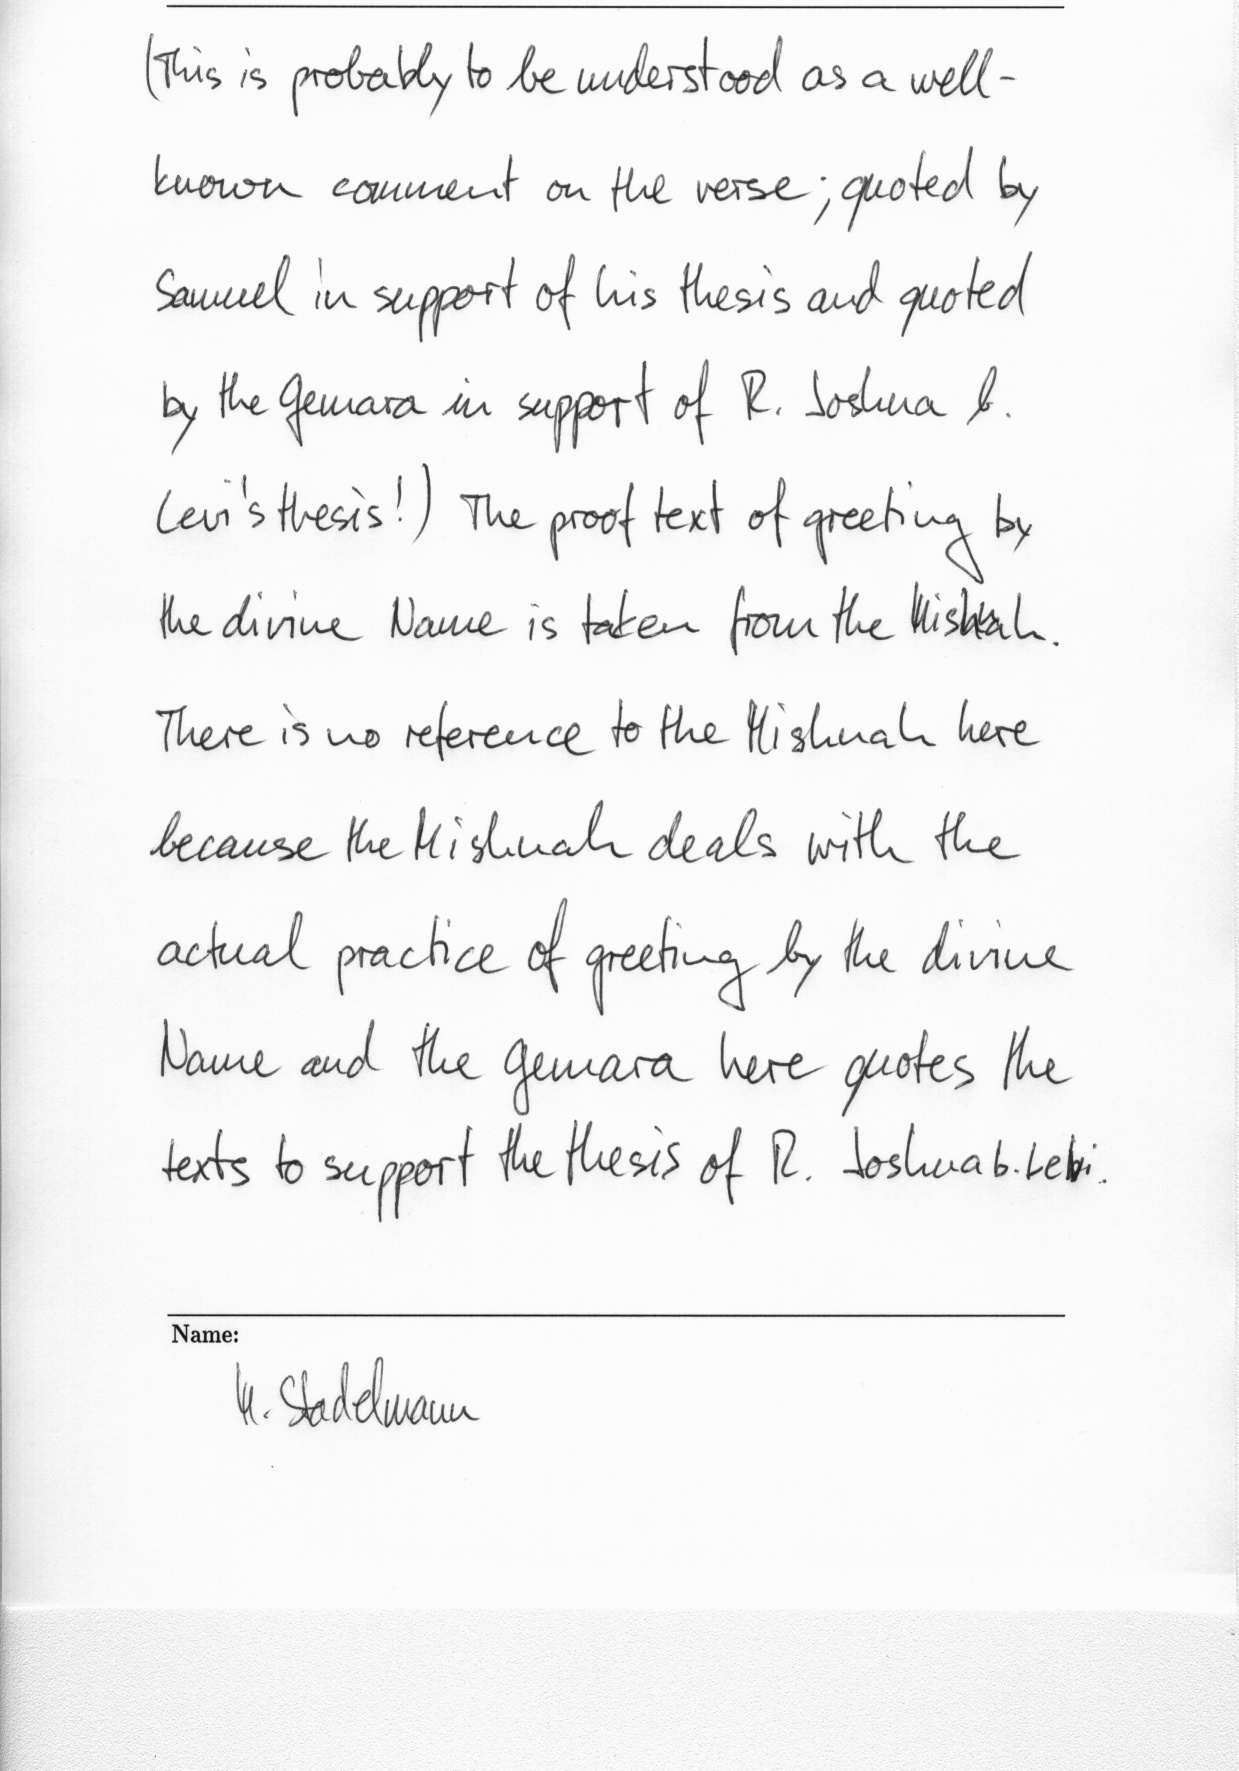 (This is probably to be understood as a well-
known comment on the verse; quoted by
Samuel in support of his thesis and quoted
by the Gemara in support of R. Joshua b.
Levi's thesis!) The proof text of greeting by
the divine Name is taken from the Mishnah.
There is no reference to the Mishnah here
because the Mishnah deals with the
actual practice of greeting by the divine
Name and the Gemara here quotes the
texts to support the thesis of R. Joshua b. Levi.
Name:
M. Stadelmann